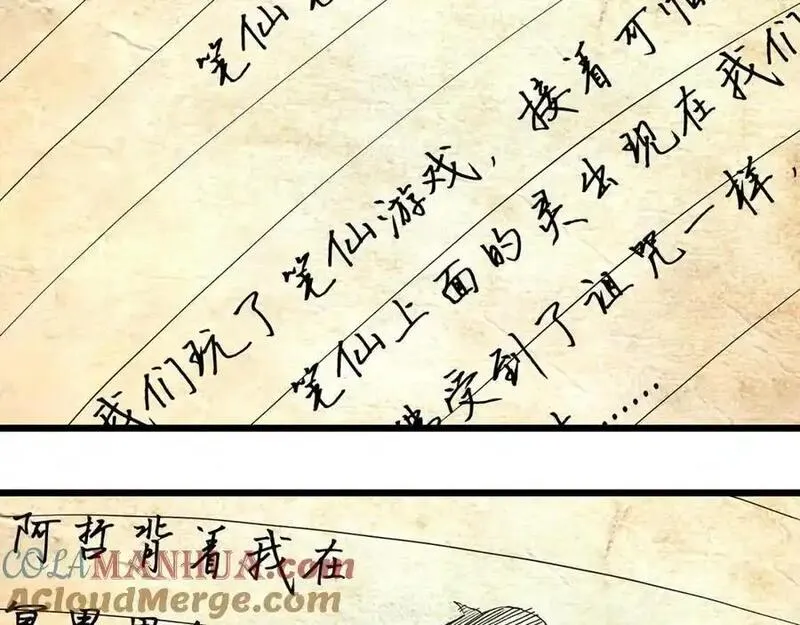 笔仙
我们玩了笔仙游戏，接着可怕
笔仙上面的灵出现在我们
像受到了诅咒一样，
……
阿哲背着我在
COLAMANHUA.com
ACloudMerge.com